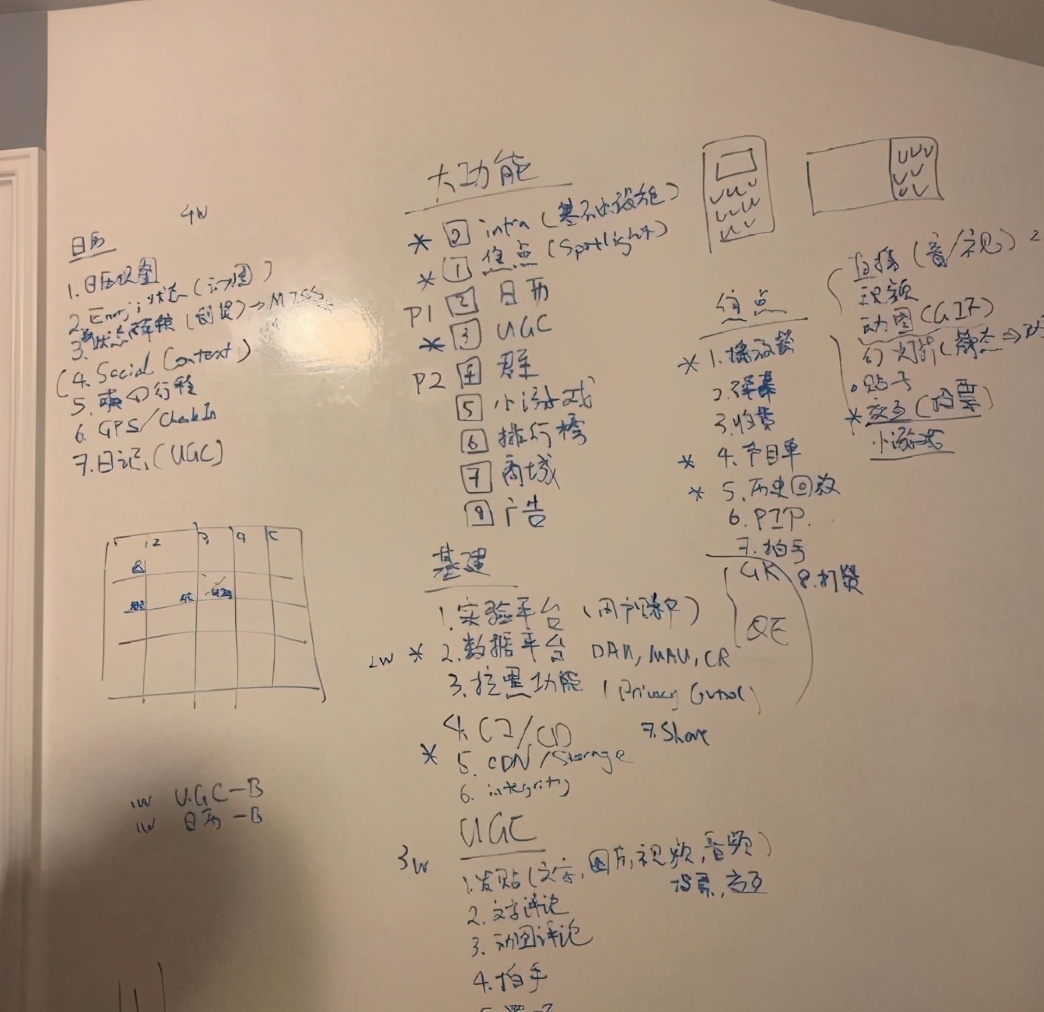 大功能
* 0 infra (基本设施)
* 1 焦点 (Spotlight)
P1 2 日历
* 3 UGC
P2 4 群
5 小游戏
6 排行榜
7 商城
8 广告
4W
日历
1. 日历设置
2. Emoji 状态 (动图)
3.
(4. Social Context)
5. 行程
6. GPS/Check In
7. 日记 (UGC)
2 3 4 5
1W UGC-B
1W 日历-B
焦点
* 1. 播放器
2. 弹幕
3. 收费
* 4. 节目单
* 5. 历史回放
6. PIP
7. 拍手
8. 打赏
直播 (音/视) 2
视频
动图 (GIF)
幻灯片 (静态 ⇒
贴子
* 交互 (投票)
小游戏
基建
1. 实验平台
GK
QE
2W * 2. 数据平台 DAU, MAU, CR
3. 拉黑功能 (Privacy Control)
4. CI/CD
7. Share
* 5. CDN/Storage
6. integrity
3W UGC
1. 发贴 (文字, 图片, 视频, 音频)
投票,
2. 文字评论
3. 动图评论
4. 拍手
5.